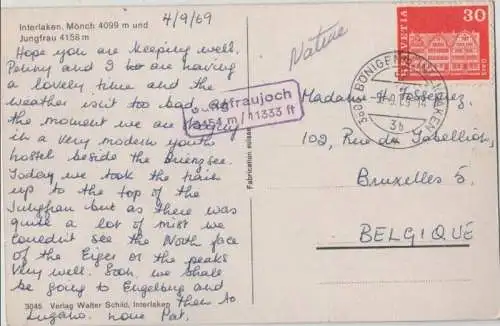 Interlaken, Mönch 4099 m und
Jungfrau 4158 m
4/9/69
Hope you are keeping well.
Penny and I are having
a lovely time and the
weather isn't too bad. At
the moment we are
in a very modern youth
hostel beside the
Today we took the train
up to the top of the
Jungfrau but as there was
quite a lot of mist we
couldn't see the North face
of the Eiger or the peaks
very well. Soon, we shall
be going to Engelburg and
then to
Lugano. love Pat.
3045 Verlag Walter Schild, Interlaken
Jungfraujoch
3454 m / 11333 ft
Fabrication suisse
Nature
HELVETIA
30
BÖNIGEN
3b
Madame H.
102, Rue de
Bruxelles 5.
BELGIQUE